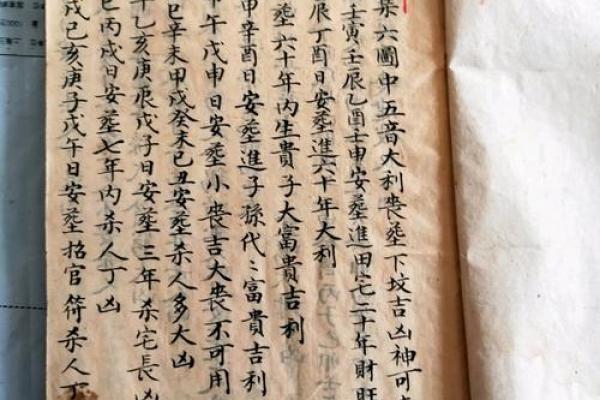 六圖中五音大利喪塟下坟吉凶神可
壬寅壬辰乙酉壬申安塟進田宅二十年財旺
辰丁酉日安塟進六十年大利
塟六十年內生貴子大富貴吉利
辛酉日安塟進子孫代〻富貴吉利
午戊申日安塟小喪吉大喪不可用
巳辛未甲戌癸未巳丑安塟杀人多大凶
乙亥庚辰戊子日安塟三年杀宅長凶
丙戌日安塟七年內杀人丁凶
戌己亥庚子戊午日安塟招官符杀人丁